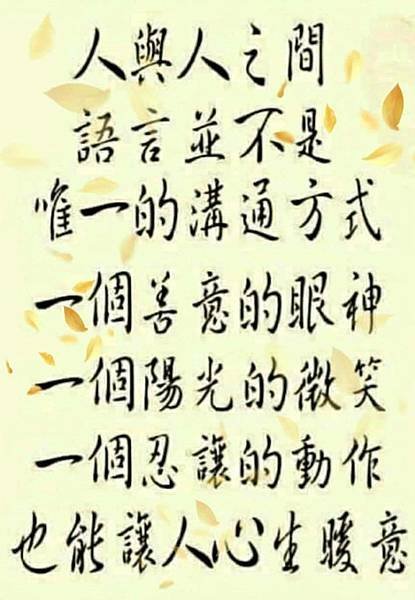 人與人之間
語言並不是
唯一的溝通方式
一個善意的眼神
一個陽光的微笑
一個忍讓的動作
也能讓人心生暖意